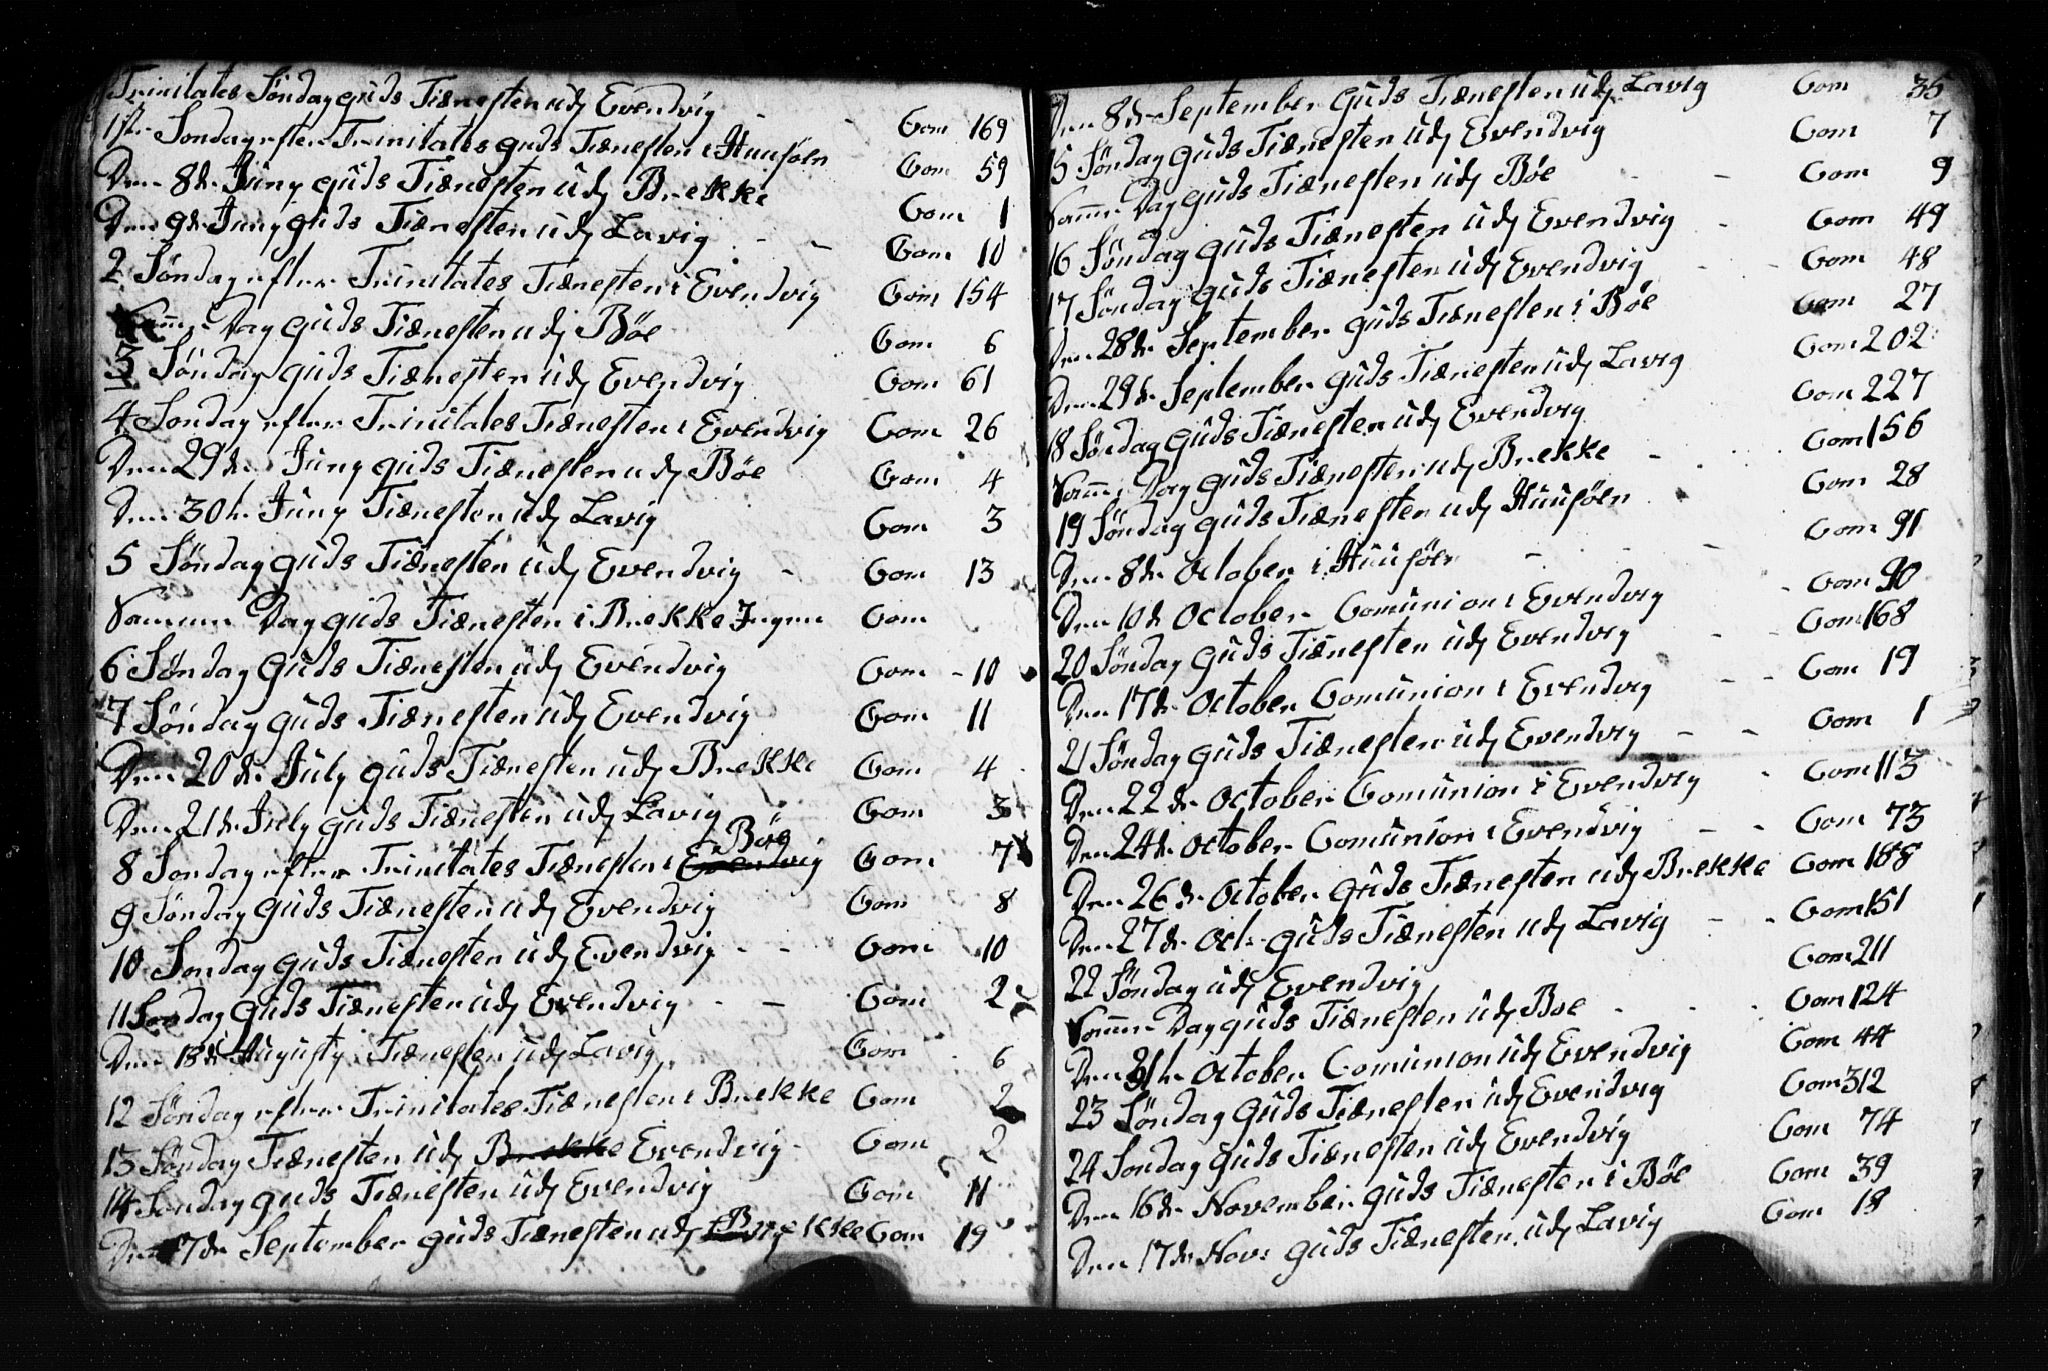 Trinitates Søndag guds Tiænesten udj Evendvig - - Com 169
1ste Søndag efter Trinitates guds Tiænesten i Huusøen Com 59
Den 8de Juny guds Tiænesten udj Brekke Com 1
Den 9de Juny guds Tiænesten udj Lavig - - Com 10
2 Søndag efter Trinitates Tiænesten i Evendvig Com 154
Samme Dag guds Tiænesten udj Böe Com 6
3 Søndag guds Tiænesten udj Evendvig Com 61
4 Søndag efter Trinitates Tiænesten i Evendvig Com 26
Den 29de Juny guds Tiænesten udj Bøe Com 4
Den 30te Juny Tiænesten udj Lavig Com 3
5 Søndag guds Tiænesten udj Evendvig - Com 13
Samme Dag guds Tiænesten i Brekke Ingen Com
6 Søndag guds Tiænesten udj Evendvig Com - 10
7 Søndag guds Tiænesten udj Evendvig Com 11
Den 20de July guds Tiænesten udj Brekke Com 4
Den 21de July guds Tiænesten udj Lavig Com 3
8 Søndag efter Trinitates Tiænesten i Evendvig Böe Com 7
9 Søndag guds Tiænesten udj Evendvig Com 8
10 Søndag guds Tiænesten udj Evendvig - - Com 10
11 Søndag guds Tiænesten udj Evendvig - - Com 2
Den 18de Augusty Tiænesten udj Lavig Com 6
12 Søndag efter Trinitates Tiænesten i Brekke Com 2
13 Søndag Tiænesten udj Brekke Evendvig - Com 2
14 Søndag guds Tiænesten udj Evendvig Com 11
Den 7de September guds Tiænesten udj Lavig Brekke Com 19
Den 8de September guds Tiænesten udj Lavig Com 35
15 Søndag guds Tiænesten udj Evendvig Com 7
Samme Dag guds Tiænesten udj Bøe - - Com 9
16 Søndag guds Tiænesten udj Evendvig - Com 49
17 Søndag guds Tiænesten udj Evendvig - - Com 48
Den 28de September guds Tiænesten i Bøe Com 27
Den 29de September guds Tiænesten udj Lavig Com 202
18 Søndag guds Tiænesten udj Evendvig Com 227
Samme Dag guds Tiænesten udj Brekke - Com 156
19 Søndag guds Tiænesten udj Huusøen - Com 28
Den 8de October i Huusøen - - - Com 91
Den 10de October Comunion i Evendvig - Com 90
20 Søndag guds Tiænesten udj Evendvig - - Com 168
Den 17de October Comunion i Evendvig - - Com 19
21 Søndag guds Tiænesten udj Evendvig - - Com 1
Den 22de October Comunion i Evendvig - Com 113
Den 24de October Comunion i Evendvig - - Com 73
Den 26de October guds Tiænesten udj Brekke Com 188
Den 27de Oct: guds Tiænesten udj Lavig - - Com 151
22 Søndag udj Evendvig Com 211
Samme Dag guds Tiænesten udj Boe - - Com 124
Den 31te October Comunion udj Evendvig Com 44
23 Søndag Guds Tiænesten udj Evendvig Com 312
24 Søndag guds Tiænesten udj Evendvig Com 74
Den 16de November guds Tiænesten i Böe Com 39
Den 17de Nov: guds Tiænesten udj Lavig Com 18